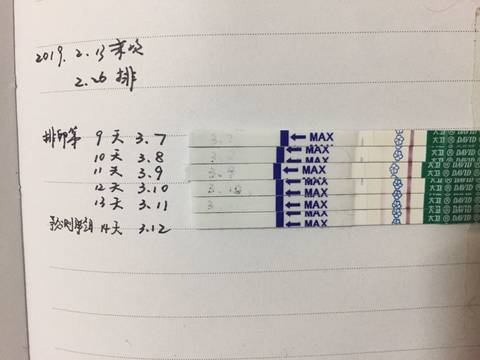 2019. 2. 13 末次
2. 26 排
排卵第 9天 3.7 3.7 MAX 大卫 DAVID
10天 3.8 MAX 大卫 DAVID
11天 3.9 3.9 MAX 大卫 DAVID
12天 3.10 3.10 MAX 大卫 DAVID
13天 3.11 MAX 大卫 DAVID
14天 3.12 MAX 大卫 DAVID